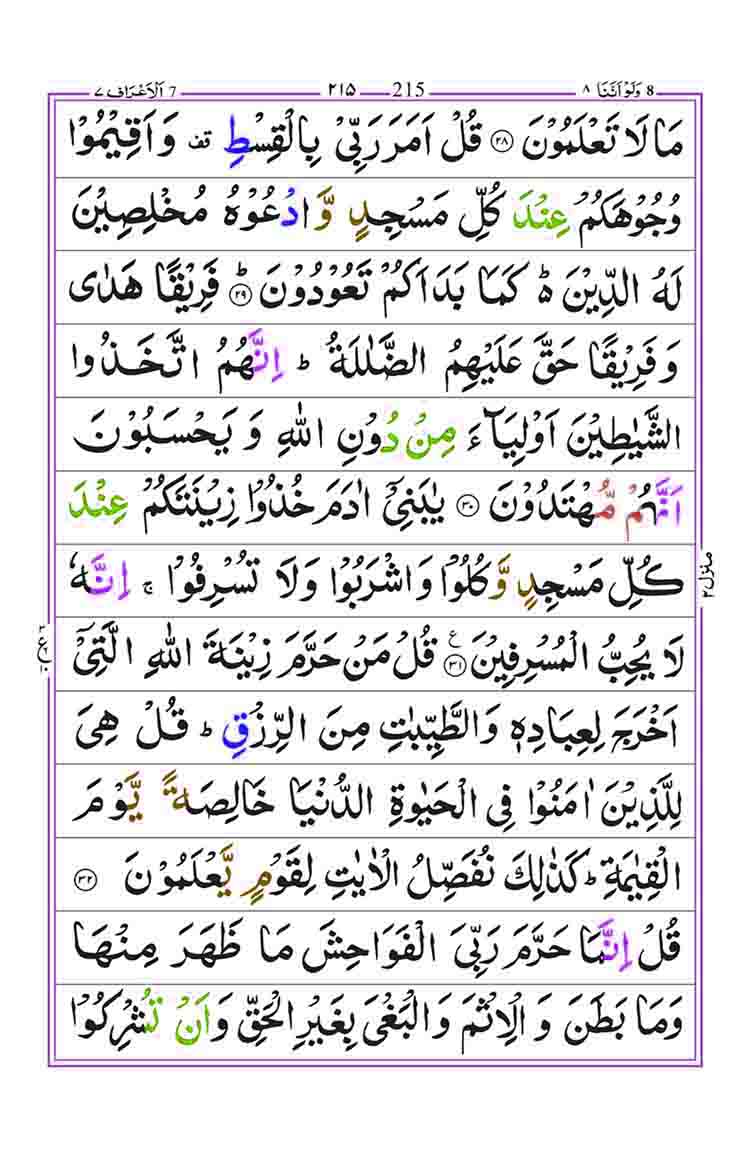 8 وَلَوْ اَنَّنَا ٨ 215 ٢١٥ 7 اَلْاَعْرَاف ٧
مَا لَا تَعْلَمُوْنَ ۝٢٨ قُلْ اَمَرَ رَبِّىْ بِالْقِسْطِ قف وَ اَقِيْمُوْا
وُجُوْهَكُمْ عِنْدَ كُلِّ مَسْجِدٍ وَّادْعُوْهُ مُخْلِصِيْنَ
لَهُ الدِّيْنَ ؕ كَمَا بَدَاَكُمْ تَعُوْدُوْنَ ۝٢٩ؕ فَرِيْقًا هَدٰى
وَ فَرِيْقًا حَقَّ عَلَيْهِمُ الضَّلٰلَةُ ؕ اِنَّهُمُ اتَّخَذُوا
الشَّيٰطِيْنَ اَوْلِيَآءَ مِنْ دُوْنِ اللّٰهِ وَ يَحْسَبُوْنَ
اَنَّهُمْ مُّهْتَدُوْنَ ۝٣٠ يٰبَنِىْٓ اٰدَمَ خُذُوْا زِيْنَتَكُمْ عِنْدَ
كُلِّ مَسْجِدٍ وَّ كُلُوْا وَ اشْرَبُوْا وَ لَا تُسْرِفُوْا ۚ اِنَّهٗ
منزل ٢
لَا يُحِبُّ الْمُسْرِفِيْنَ ۝٣١ع قُلْ مَنْ حَرَّمَ زِيْنَةَ اللّٰهِ الَّتِىْٓ
اَخْرَجَ لِعِبَادِهٖ وَالطَّيِّبٰتِ مِنَ الرِّزْقِ ؕ قُلْ هِىَ
لِلَّذِيْنَ اٰمَنُوْا فِى الْحَيٰوةِ الدُّنْيَا خَالِصَةً يَّوْمَ
الْقِيٰمَةِ ؕ كَذٰلِكَ نُفَصِّلُ الْاٰيٰتِ لِقَوْمٍ يَّعْلَمُوْنَ ۝٣٢
قُلْ اِنَّمَا حَرَّمَ رَبِّىَ الْفَوَاحِشَ مَا ظَهَرَ مِنْهَا
وَمَا بَطَنَ وَ الْاِثْمَ وَ الْبَغْىَ بِغَيْرِ الْحَقِّ وَ اَنْ تُشْرِكُوْا